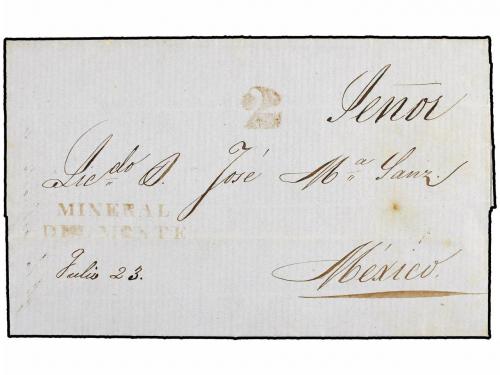 2
Señor
Licdo D. José Ma Sanz.
MINERAL
DEL MONTE
Julio 23.
México.